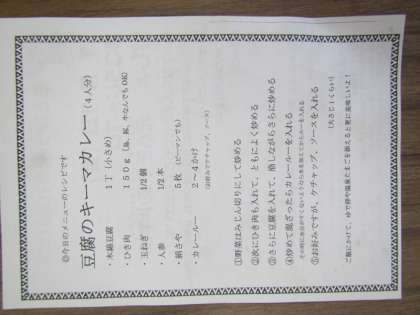 ◎今日のメニューのレシピです
豆腐のキーマカレー（4人分）
・木綿豆腐 1丁（小さめ）
・ひき肉 150g（鶏、豚、牛なんでもOK）
・玉ねぎ 1/2個
・人参 1/2本
・絹さや 5枚（ピーマンでも）
・カレールー 2～4かけ
（お好みでケチャップ、ソース）
①野菜はみじん切りにして炒める
②次にひき肉も入れて、ともによく炒める
③さらに豆腐を入れて、崩しながらさらに炒める
④炒めて混ざったらカレールーを入れる
⑤お好みですが、ケチャップ、ソースを入れる
（大さじ1くらい）
ご飯にかけて、ゆで卵や温泉たまごを添えると更に美味しいよ！